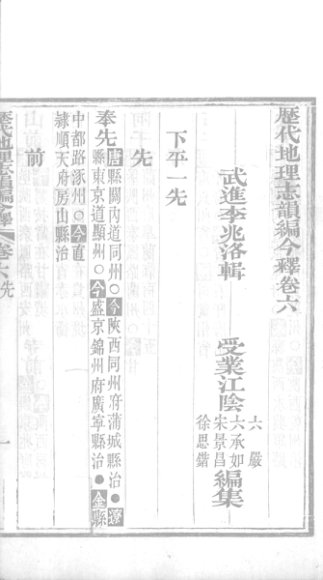 歷代地理志韻編今釋卷六
武進李兆洛輯
受業江陰
六嚴
六承如
宋景昌
徐思鍇
編集
下平一先
先
奉先唐縣關內道同州○今陝西同州府蒲城縣治●遼
縣東京道顯州○今盛京錦州府廣寧縣治●金縣
中都路涿州○今直
隸順天府房山縣治
前
歷代地理志韻編今釋
卷六先
一